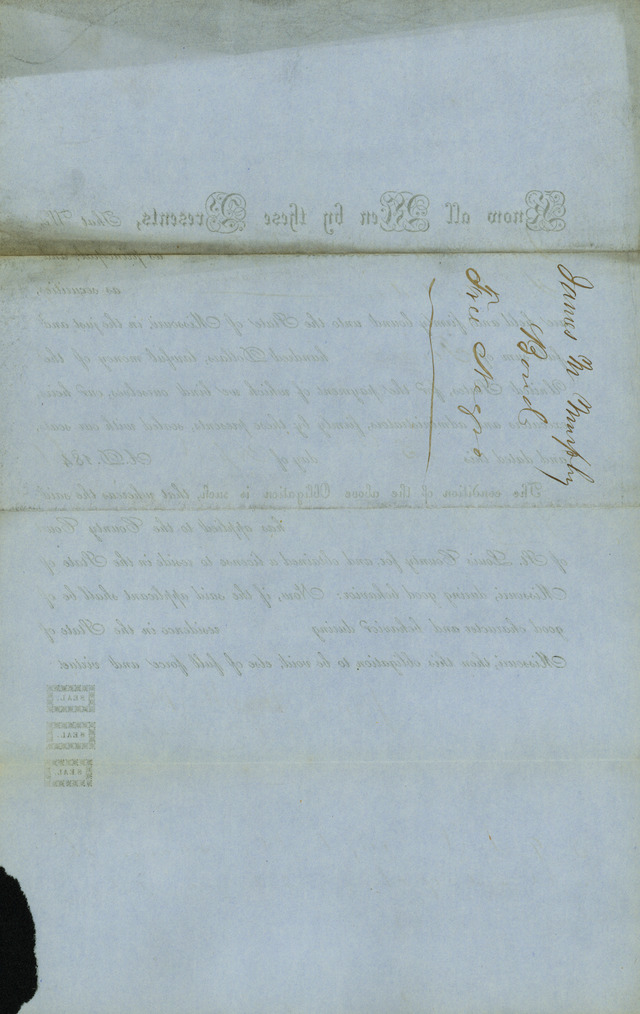 James M. Murphy
Bond
Free Negro
Know all Men by these Presents, That We
as principal and
as securities,
are held and firmly bound unto the State of Missouri, in the just and
hundred Dollars, lawful money of the
United States, for the payment of which we bind ourselves, our heirs,
executors and administrators, firmly by these presents, sealed with our seals
and dated this day of A.D. 184
The condition of the above Obligation is such, that whereas the said
has applied to the County Cou
of St. Louis County for and obtained a license to reside in the State of
Missouri, during good behavior: Now, if the said applicant shall be of
good character and behavior during residence in the State of
Missouri, then this obligation to be void, else of full force and virtue.
SEAL.
SEAL.
SEAL